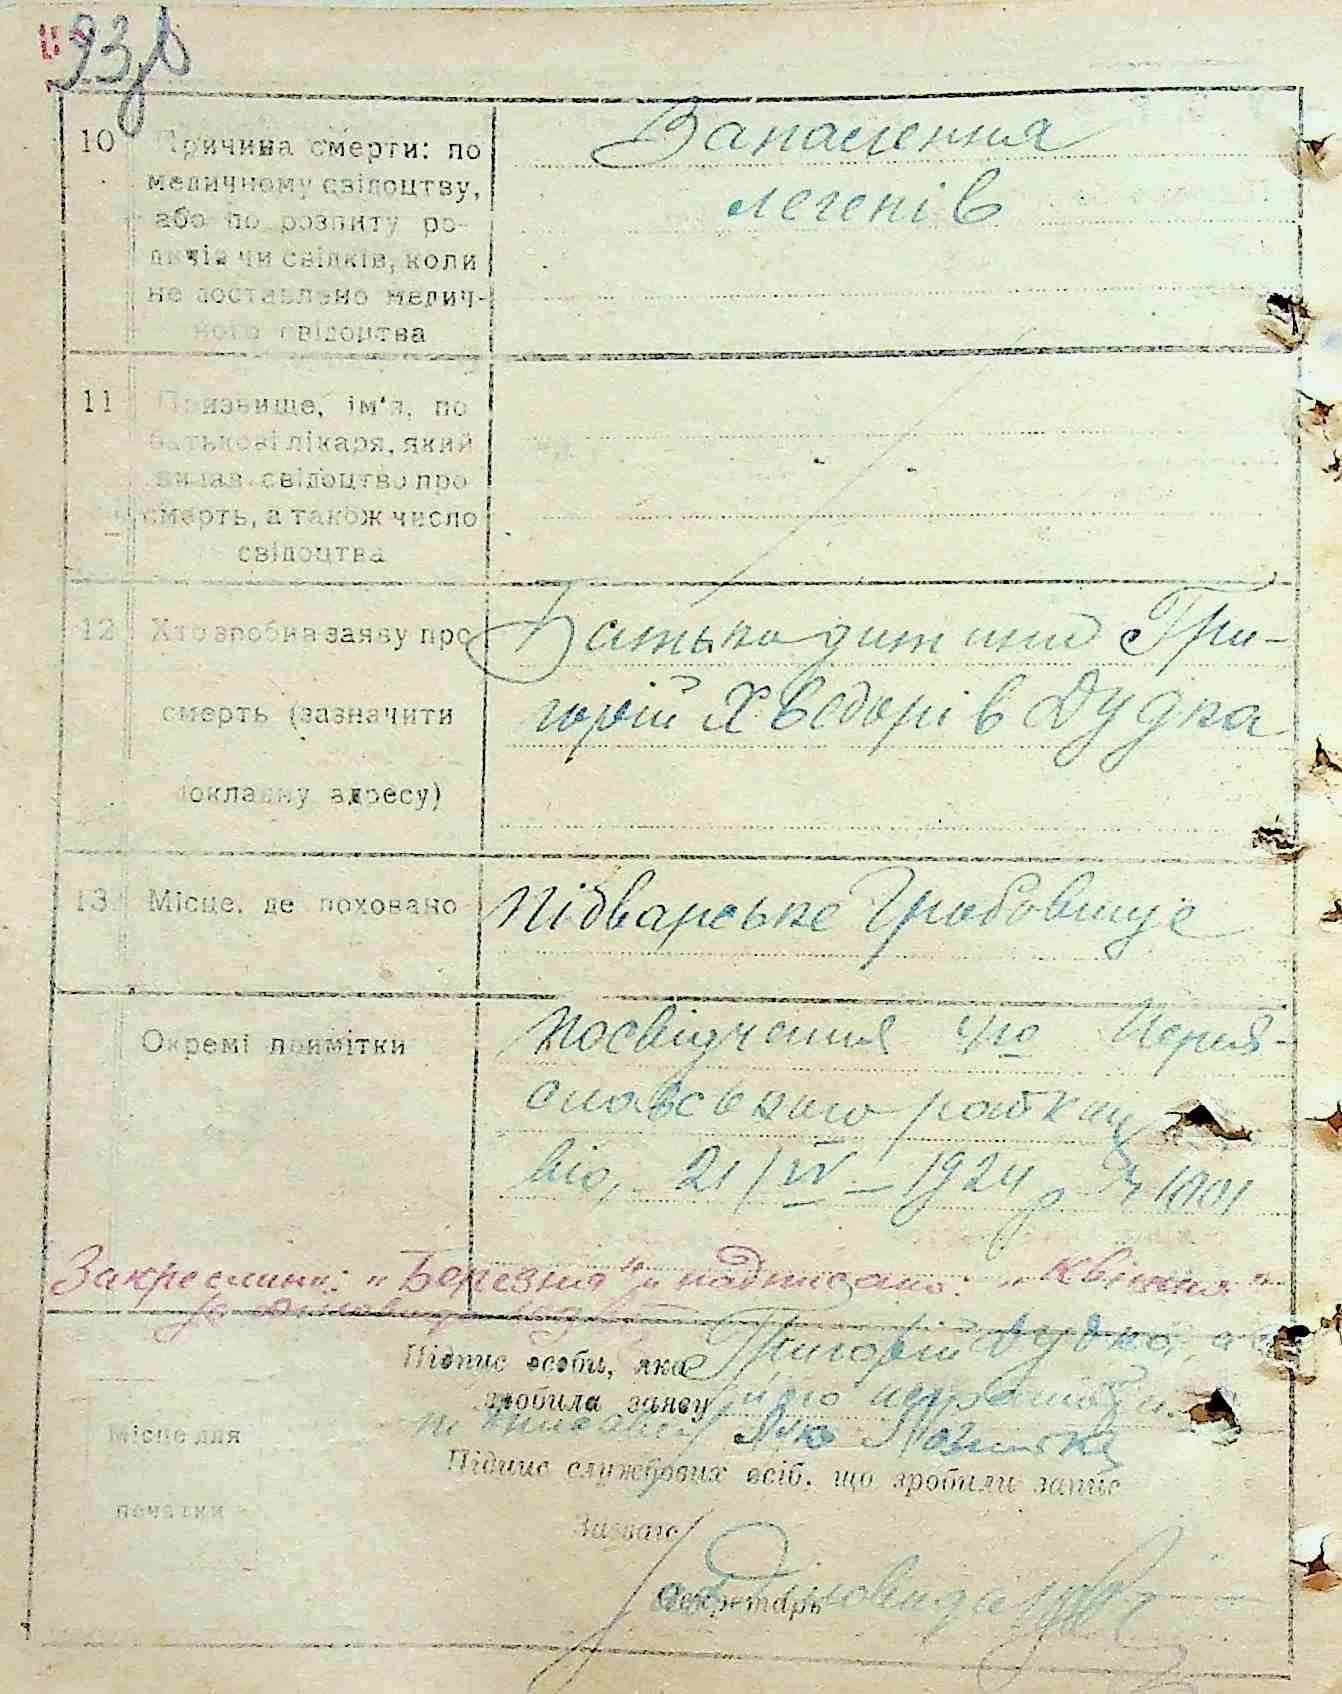 93
10
Причина смерти: по
медичному свідоцтву,
або по розпиту ро-
дичів чи свідків, коли
не доставлено медич-
ного свідоцтва
Запалення
легенів
11
Призвище, ім'я, по
батькові лікаря, який
видав свідоцтво про
смерть, а також число
свідоцтва
12
Хто зробив заяву про
смерть (зазначити
докладну адресу)
Батько дитини Гри-
горій Хведорів Дудка
13
Місце, де поховано
Підварське Гробовище
Окремі помітки
Посвідчення Переяс-
від 21/IV – 1924 р
Закреслинні: "Березня" надписано: "квітня"
Підпис особи, яка
зробила заяву
Григорій Дудка, а за
його неграмот.
Місце для
печатки
Підпис службових осіб, що зробили запис
Завзагс
Секретарь